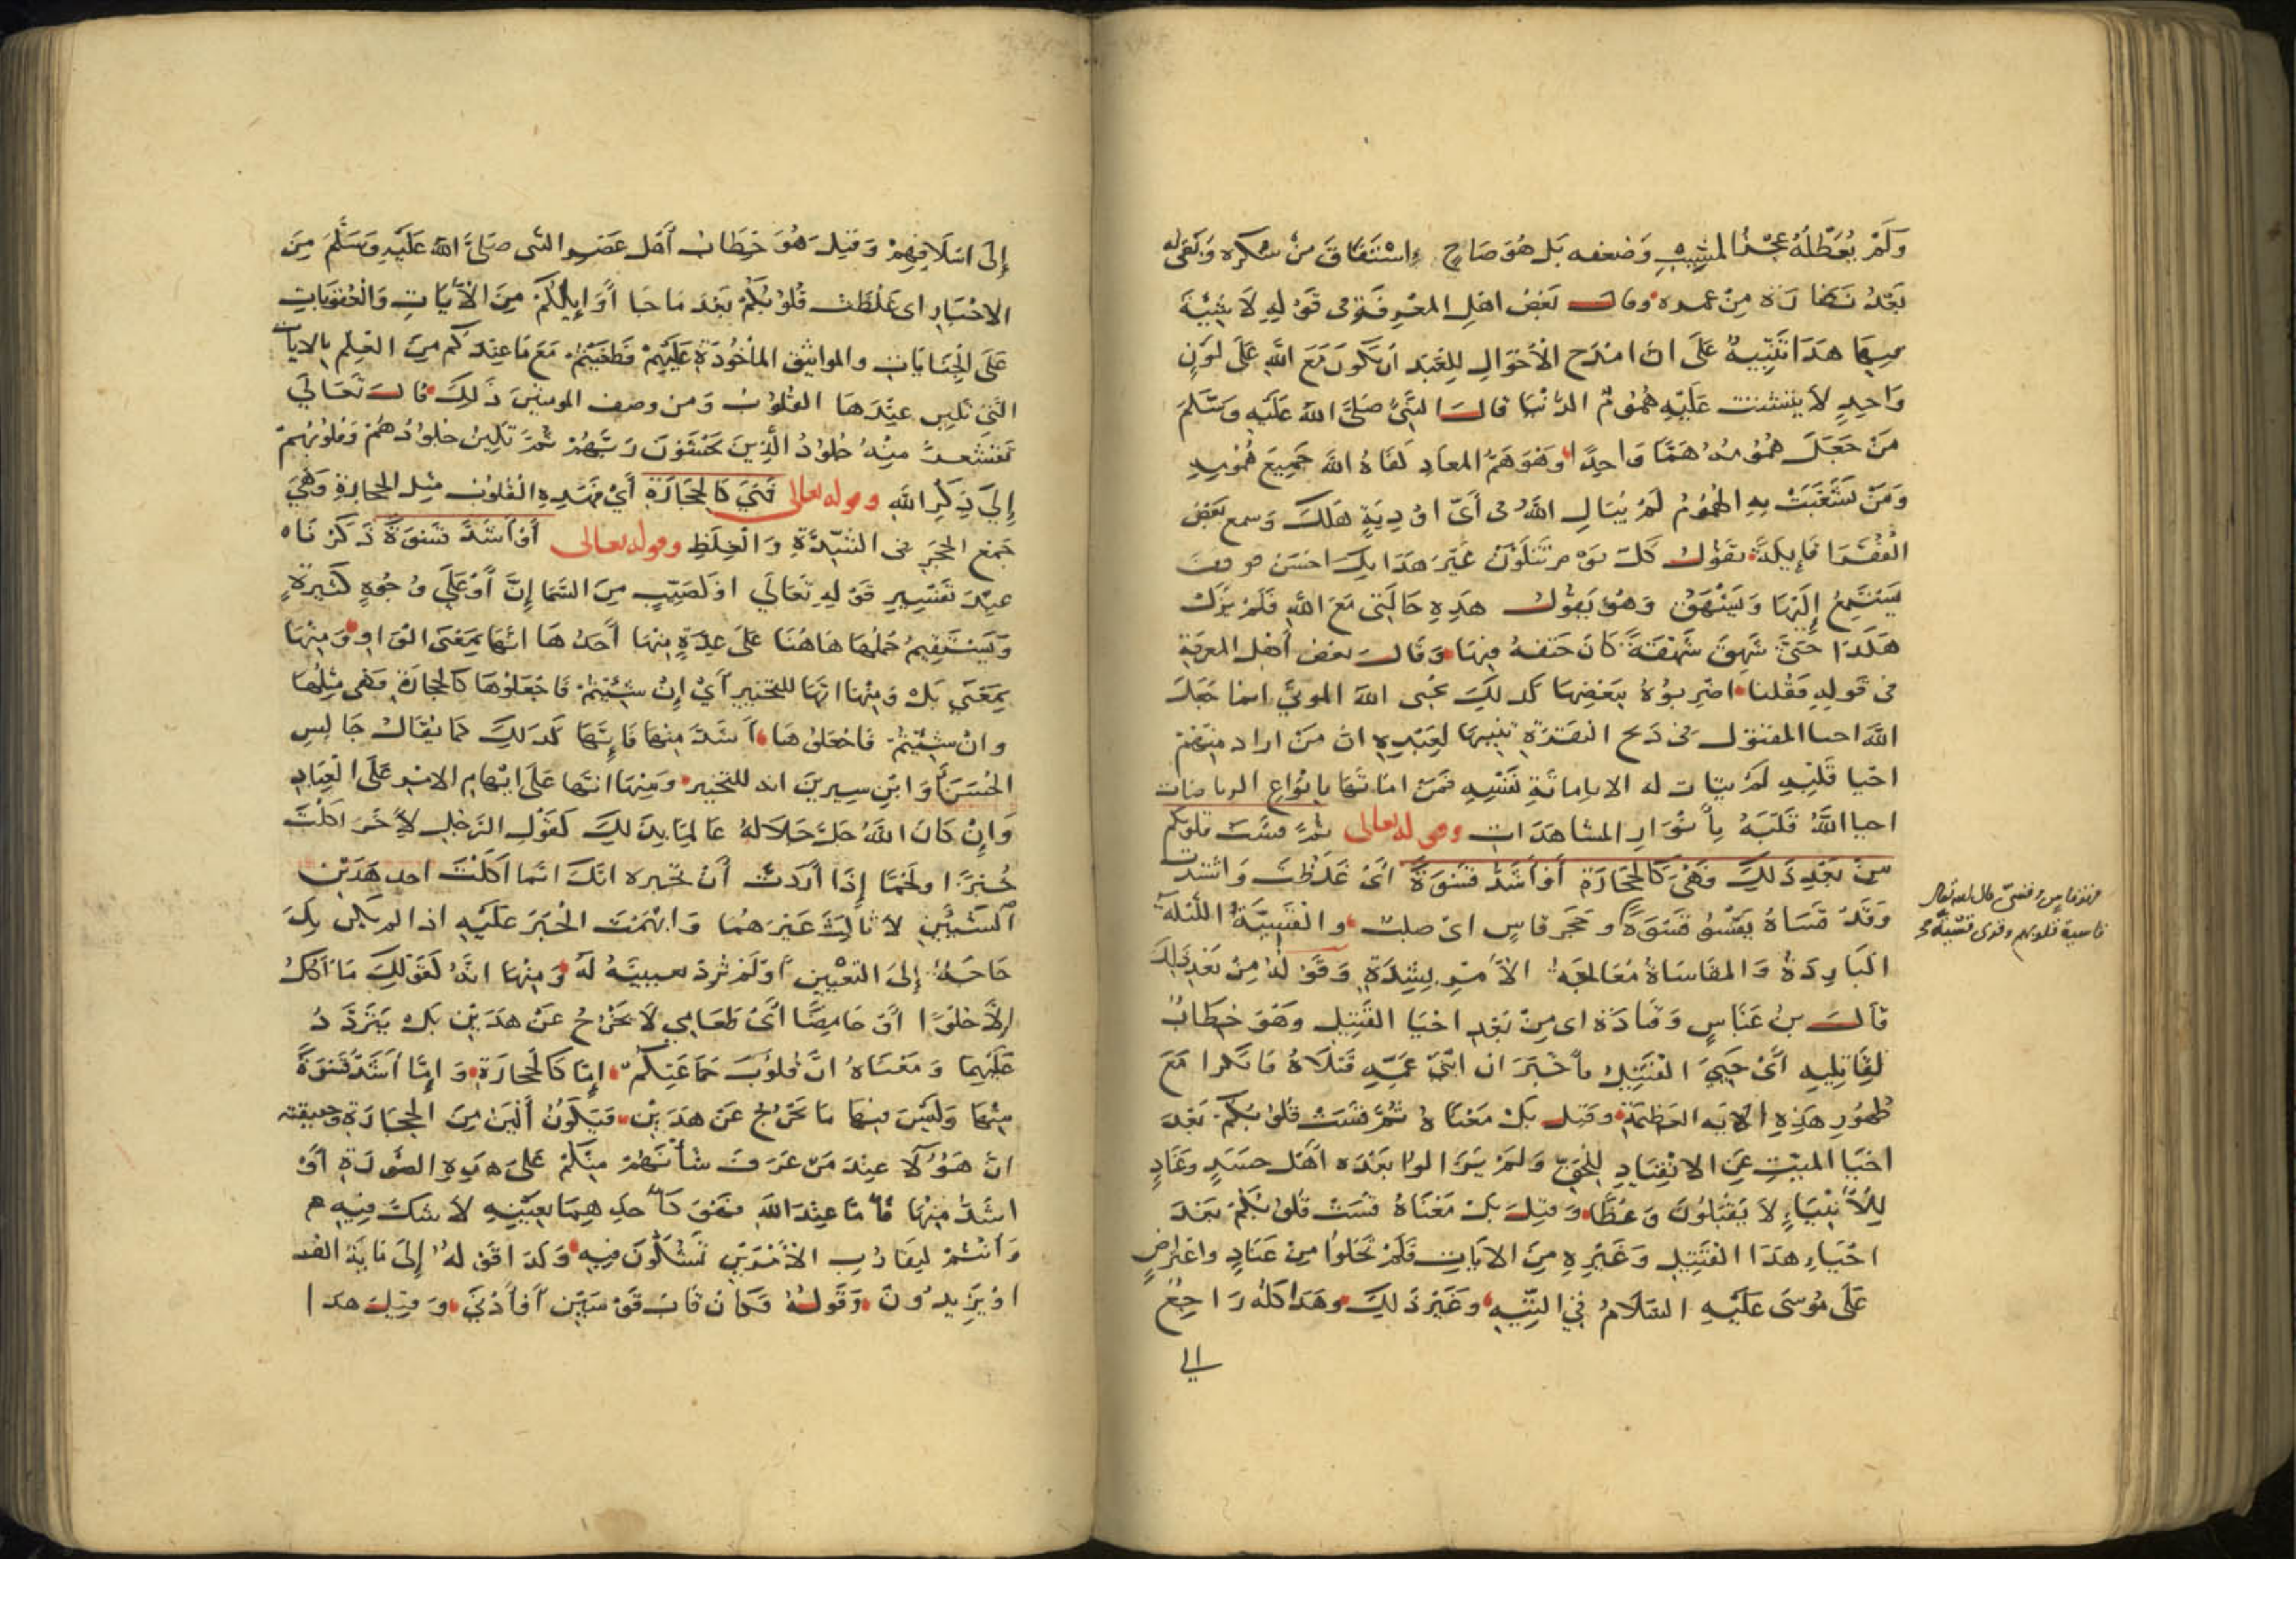 وَلَمْ يُعَطِّلهُ عَجْزُ المشِيْبِ وَضعفه بَل هُوَ صَاحٍ اِسْتَفَاقَ مِنْ سُكره وَبَقى له
بَعْدُ نَضَارَة مِنْ عمره وقالــ بَعْضُ اهْلِ المعْرِفَةِ فى قَوْلِهِ لَا شِيَةَ
فِيهَا هَذَا تَنْبِيهٌ عَلَى انَّ امْدَحَ الْأَحْوَالِ لِلْعَبْدِ اَن يَكُونَ مَعَ اللهِ عَلَى لَوْنٍ
وَاحِدٍ لَا يتشتت عَلَيْهِ هُمُومُ الدُّنْيَا قالــ النَّبِىُّ صَلَّى اللهُ عَلَيْهِ وَسَلَّمَ
مَنْ جَعَلَ هُمُومَهُ هَمًّا وَاحِدًا وَهُوَ هَمُّ المعَادِ كَفَاهُ اللهُ جَمِيعَ هُمُومِهِ
وَمَنْ تشَعَّبَتْ بِهِ الهُمُومُ لَمْ يُبَالِ اللهُ فى أَىِّ اوْدِيَةٍ هَلَكَ وَسمع بَعْضُ
الفُقَرَا قَائِلَةً تقُولُ كُلَّ يَوْمٍ تَتَلَوَّنُ غَيْرَ هَذَا بِكَ احْسَنُ فوقف
يَسْتَمِعُ إِلَيْهَا وَيَشْهَقُ وَهُوَ يَقُولُ هَذِهِ حَالَتِى مَعَ اللهِ فَلَمْ يَزَلْ
هَكَذَا حَتَّى شَهِقَ شَهْقَةً كَانَ حَتفهُ فِيهَا وَقَالــ بَعْضُ أَهْلِ المعرفَةِ
فى قَولِهِ فَقُلْنا اضْرِبُوهُ بِبَعْضِهَا كَذَلِكَ يُحْيى اللهُ الموتَى انما جَعَلَ
اللهُ احيا المقتول فى ذبح البَقَرَةِ تنبيهًا لِعَبِيْدِهِ انَّ مَنْ اراد مِنْهُمْ
احْيَا قَلْبِهِ لَمْ يتات له الا بامَاتَةِ نَفْسِهِ فَمَنْ امَاتَهَا بِانْوَاعِ الرياضات
احيا اللهُ قَلْبَهُ بِأَنْوَارِ المشَاهَدَاتِ وقوله تعالى ثُمَّ قَسَتْ قلوبكم
مِنْ بَعْدِ ذَلِكَ فَهِىَ كَالحِجَارَةِ أَوْ أَشَدُّ قَسْوَةً اىْ غَلُظَتْ وَاشْتَدَّت
وَقَدْ قَسَاهُ يَقْسُو قَسْوَةً وحَجَر قاسٍ اىْ صلبٌ والقَسِيَّةُ اللَّيْلَة
البَارِدَةُ وَالمقَاسَاةُ مُعَالَجَةُ الأَمْرِ بِشِدَّةٍ وَقَوْلُهُ مِنْ بَعْدِ ذَلِكَ
قالــ بنُ عَبَّاسٍ وَقَتَادَة اى مِنْ بَعْدِ احْيَا القَتِيلِ وَهُوَ خِطَابٌ
لِقَاتِلِيهِ أَىْ حَيِىَ القَتِيْلُ فأَخْبَرَ انَّ ابْنَىْ عَمِّهِ قَتَلَاهُ فَانْكَرا مَعَ
ظُهُورِ هَذِهِ الايَة العَظِيمَةِ وَقِيلــ بَلْ مَعْنَاهُ ثُمَّ قَسَتْ قُلُوبُكُمْ بَعْدَ
احْيَا المَيِّتِ عَنِ الانْقِيَادِ لِلْحَقِّ وَلَمْ يَزَالُوا بَعْدَهُ اَهْلَ حَسَدٍ وَعِنَادٍ
لِلْأَنْبِيَاءِ لَا يَقْبَلُونَ وَعْظًا وَقِيلَــ بَلْ مَعْنَاهُ قَسَتْ قُلُوبُكُمْ بَعْدَ
احْيَاءِ هَذَا القَتِيْلِ وَغَيْرِهِ مِنَ الايَاتِ فَلَمْ تَخْلُوا مِنْ عِنَادٍ وَاعْتِرَاضٍ
عَلَى مُوسَى عَلَيْهِ السَّلَامُ فِي التِّيْهِ وَغَيْرِ ذَلِكَ وهَذَا كُلُّهُ رَاجِعٌ
الى
قاسية قلوبهم
إِلَى اسْلَافِهِمْ وَقِيْلَــ هُوَ خِطَابُ أَهْلِ عَصْرِ النَّبى صَلَّى اللهُ عَلَيْهِ وَسَلَّمَ مِنَ
الاحْبَارِ اى غَلُظَتْ قُلُوبُكُمْ بَعْدَ مَا جَا أَوَايِلَكُمْ مِنَ الْأيَاتِ وَالْعُقُوبَاتِ
عَلَى الْجِنَايَاتِ والمواثيق المأْخُوذَةِ عَلَيْهِمْ فَطَغَيْتُمْ مَعَ مَا عِنْدَكُمْ مِنَ العِلْمِ بالايات
الَّتِي تَلِينُ عِنْدَهَا القُلُوبُ وَمِنْ وصف المومنِيْنَ ذَلِكَ قَالــ تَعَالَي
تَقْشَعِرُّ مِنْهُ جُلُودُ الَّذِينَ يَخْشَوْنَ رَبَّهُمْ ثُمَّ تَلِينُ جُلُودُهُمْ وَقُلُوبُهُمْ
إِلَى ذِكْرِ اللهِ وقوله تعالى فَهِيَ كَالْحِجَارَةِ أَيْ فَهَذِهِ الْقُلُوبُ مِثْلُ الْحِجَارَةِ وَهِيَ
جَمْعُ الحَجَرِ فى الشِّدَّةِ وَالْغِلَظِ وقوله تعالى أَوْ أَشَدُّ قَسْوَةً ذَكَرْنَاه
عِنْدَ تَفْسِيرِ قَوْلِهِ تَعَالَى اوْ كَصَيِّبٍ مِنَ السَّمَا إِنَّ أَوْ عَلَى وُجُوْهٍ كَثِيْرَةٍ
وَيَسْتَقِيمُ حَمْلُهَا هَاهُنَا عَلَى عِدَّةٍ مِنْهَا أَحَدُهَا انَّهَا بِمَعْنَى الْوَاوِ وَمِنْهَا
بِمَعْنَى بَلْ وَمِنْهَا انَّهَا للتَّخْيِيرِ أَيْ إِنْ شِئْتُمْ فَاجْعَلُوْهَا كَالحِجَارَةِ فَهِىَ مِثْلُهَا
وانْ شِئْتُمْ فَاجْعَلُوْهَا اَشَدَّ مِنْهَا فَإِنَّهَا كَذَلِكَ كَمَا يُقَالُ جَالِسِ
الحَسَنَ أَوَ ابْنِ سِيرِينَ انه للتخيير وَمِنْهَا انَّهَا عَلَى ابْهَامِ الامْرِ عَلَى الْعِبَادِ
وَإِنْ كَانَ اللهُ جَلَّ جَلَالهُ عَالِمًا بِذَلِكَ كَقَوْلِ الرَّجُلِ لِأَخَرَ اكَلْتُ
خُبْزًا اولَحْمًا إِذَا أَرَدْتَ أَنْ تُخبره انَّكَ انَّمَا اكَلْتَ احد هَذَيْنِ
الشَّيْئَيْنِ لَا ثَالِثَ غَيْرَهُمَا وَابْهَمْتَ الْخَبَرَ عَلَيْهِ اذ الم يكن بِكَ
حَاجَةٌ إِلَى التَّعْيِيْنِ أَوْ لَمْ تُرِدْ تبيينَهُ لَهُ وَمِنْهَا انَّهُ كَقَوْلِكَ مَا آكُلُ
إِلَّا حُلْوًا أَوْ حَامِضًا أَىْ طَعَامِي لَا يَخْرُجُ عَنْ هَذَيْنِ بَلْ يَتَرَدَّدُ
عَلَيْهِمَا وَمَعْنَاهُ انَّ قُلُوبَ جَمَاعَتِكُمْ إِمَّا كَالْحِجَارَةِ وَإِمَّا أَشَدُّ قَسْوَةً
مِنْهَا وَلَيْسَ فِيهَا مَا يَخْرُجُ عَنْ هَذَيْنِ فَيَكُونُ أَلْيَنَ مِنَ الحِجَارَةِ وحقيقته
انَّ هَؤُلَا عِنْدَ مَنْ عَرَفَ شَأْنَهُمْ مِنْكُمْ عَلَى هَذِهِ الصُّورَةِ أَوْ
اشَدُّ مِنْهَا فَأَمَّا عِنْدَ اللهِ فَهُوَ كَأَحَدِهِمَا بِعَيْنِهِ لَا شَكَّ فِيْهِ
وَانْتُمْ لِتَقَارُبِ الْأَمْرَيْنِ تَشُكُّونَ فِيهِ وَكَذَا قَوْلُهُ إِلَى مَايَةِ الف
اوْ يَزِيدُونَ وَقَوْلُهُ فَكَانَ قَابَ قَوْسَيْنِ أَوْ أَدْنَى وَقِيْلَ هذا